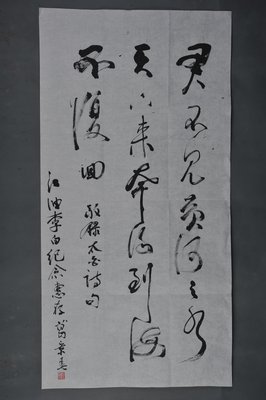 君不见黄河之水
天上来奔流到海
不復回 敬録太白詩句
江油李白纪念惠存